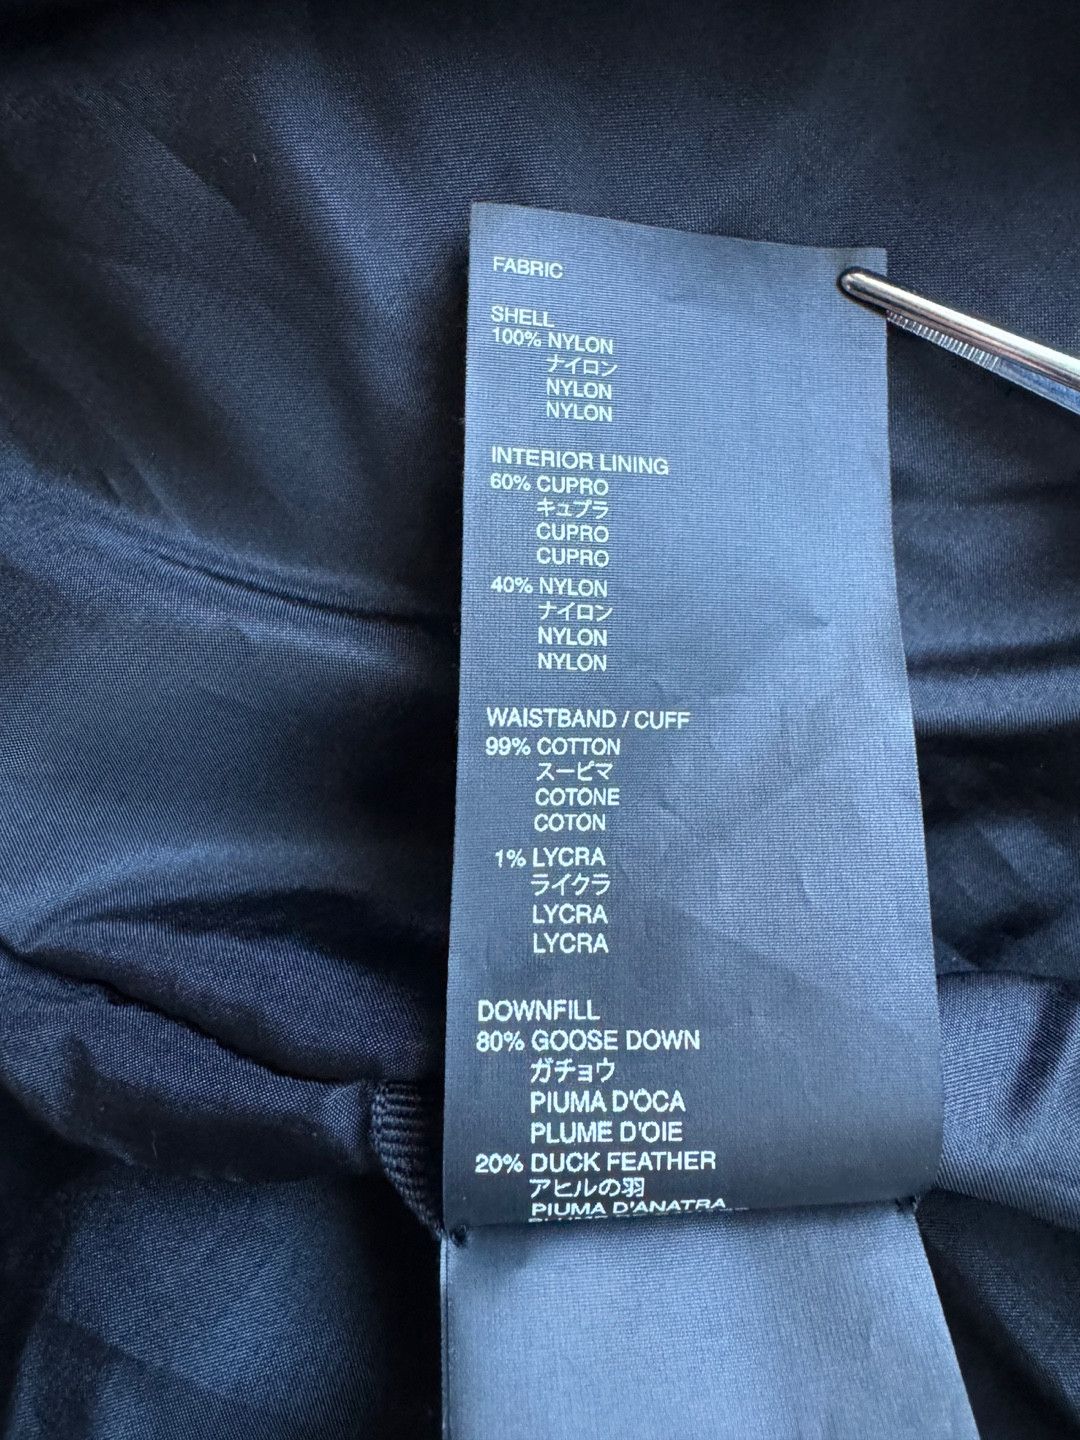 FABRIC
SHELL
100% NYLON
ナイロン
NYLON
NYLON
INTERIOR LINING
60% CUPRO
キュプラ
CUPRO
CUPRO
40% NYLON
ナイロン
NYLON
NYLON
WAISTBAND / CUFF
99% COTTON
スーピマ
COTONE
COTON
1% LYCRA
ライクラ
LYCRA
LYCRA
DOWNFILL
80% GOOSE DOWN
ガチョウ
PIUMA D'OCA
PLUME D'OIE
20% DUCK FEATHER
アヒルの羽
PIUMA D'ANATRA